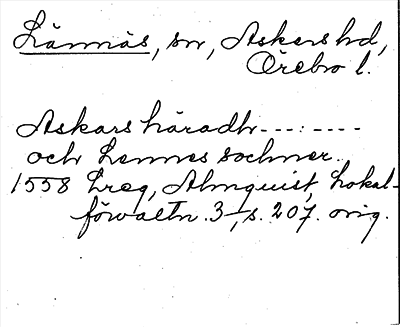 Lännäs, sn, Askers hd,
Örebro l.
Askars häradh---:----
och Lennes sochner.
1558 Lreg, Almquist, Lokal-
förvaltn. 3, s. 207. orig.